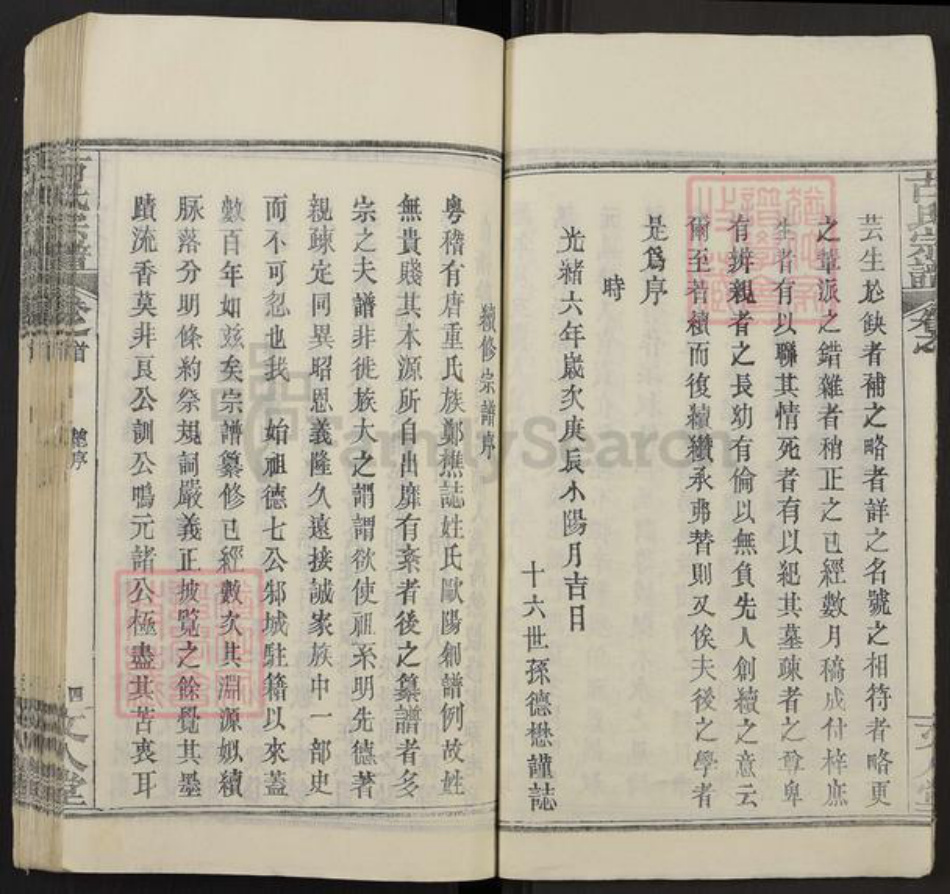 芸生尨缺者補之略者詳之名號之相符者略更
之輩派之錯雜者稍正之已經數月稿成付梓庶
生者有以聯其情死者有以紀其墓疎者之尊卑
有辨親者之長幼有倫以無負先人創續之意云
爾至若續而復續纘承弗替則又俟夫後之學者
是爲序
時
光緒六年歲次庚辰小陽月吉日
十六世孫德懋謹誌
續修宗譜序
粵稽有唐重氏族鄭樵誌姓氏歐陽創譜例故姓
無貴賤其本源所自出靡有紊者後之纂譜者多
宗之夫譜非徙族大之謂謂欲使祖系明先德著
親疎定同異昭恩義隆久遠接誠家族中一部史
而不可忽也我 始祖德七公邾城駐籍以來葢
數百年如玆矣宗譜纂修已經數次其淵源姒續
脉落分明條約祭規詞嚴義正披覽之餘覺其墨
蹟流香莫非良公訓公鳴元諸公極盡其苦衷耳
氏宗譜
卷之首
譜序
四
文人堂
FamilySearch